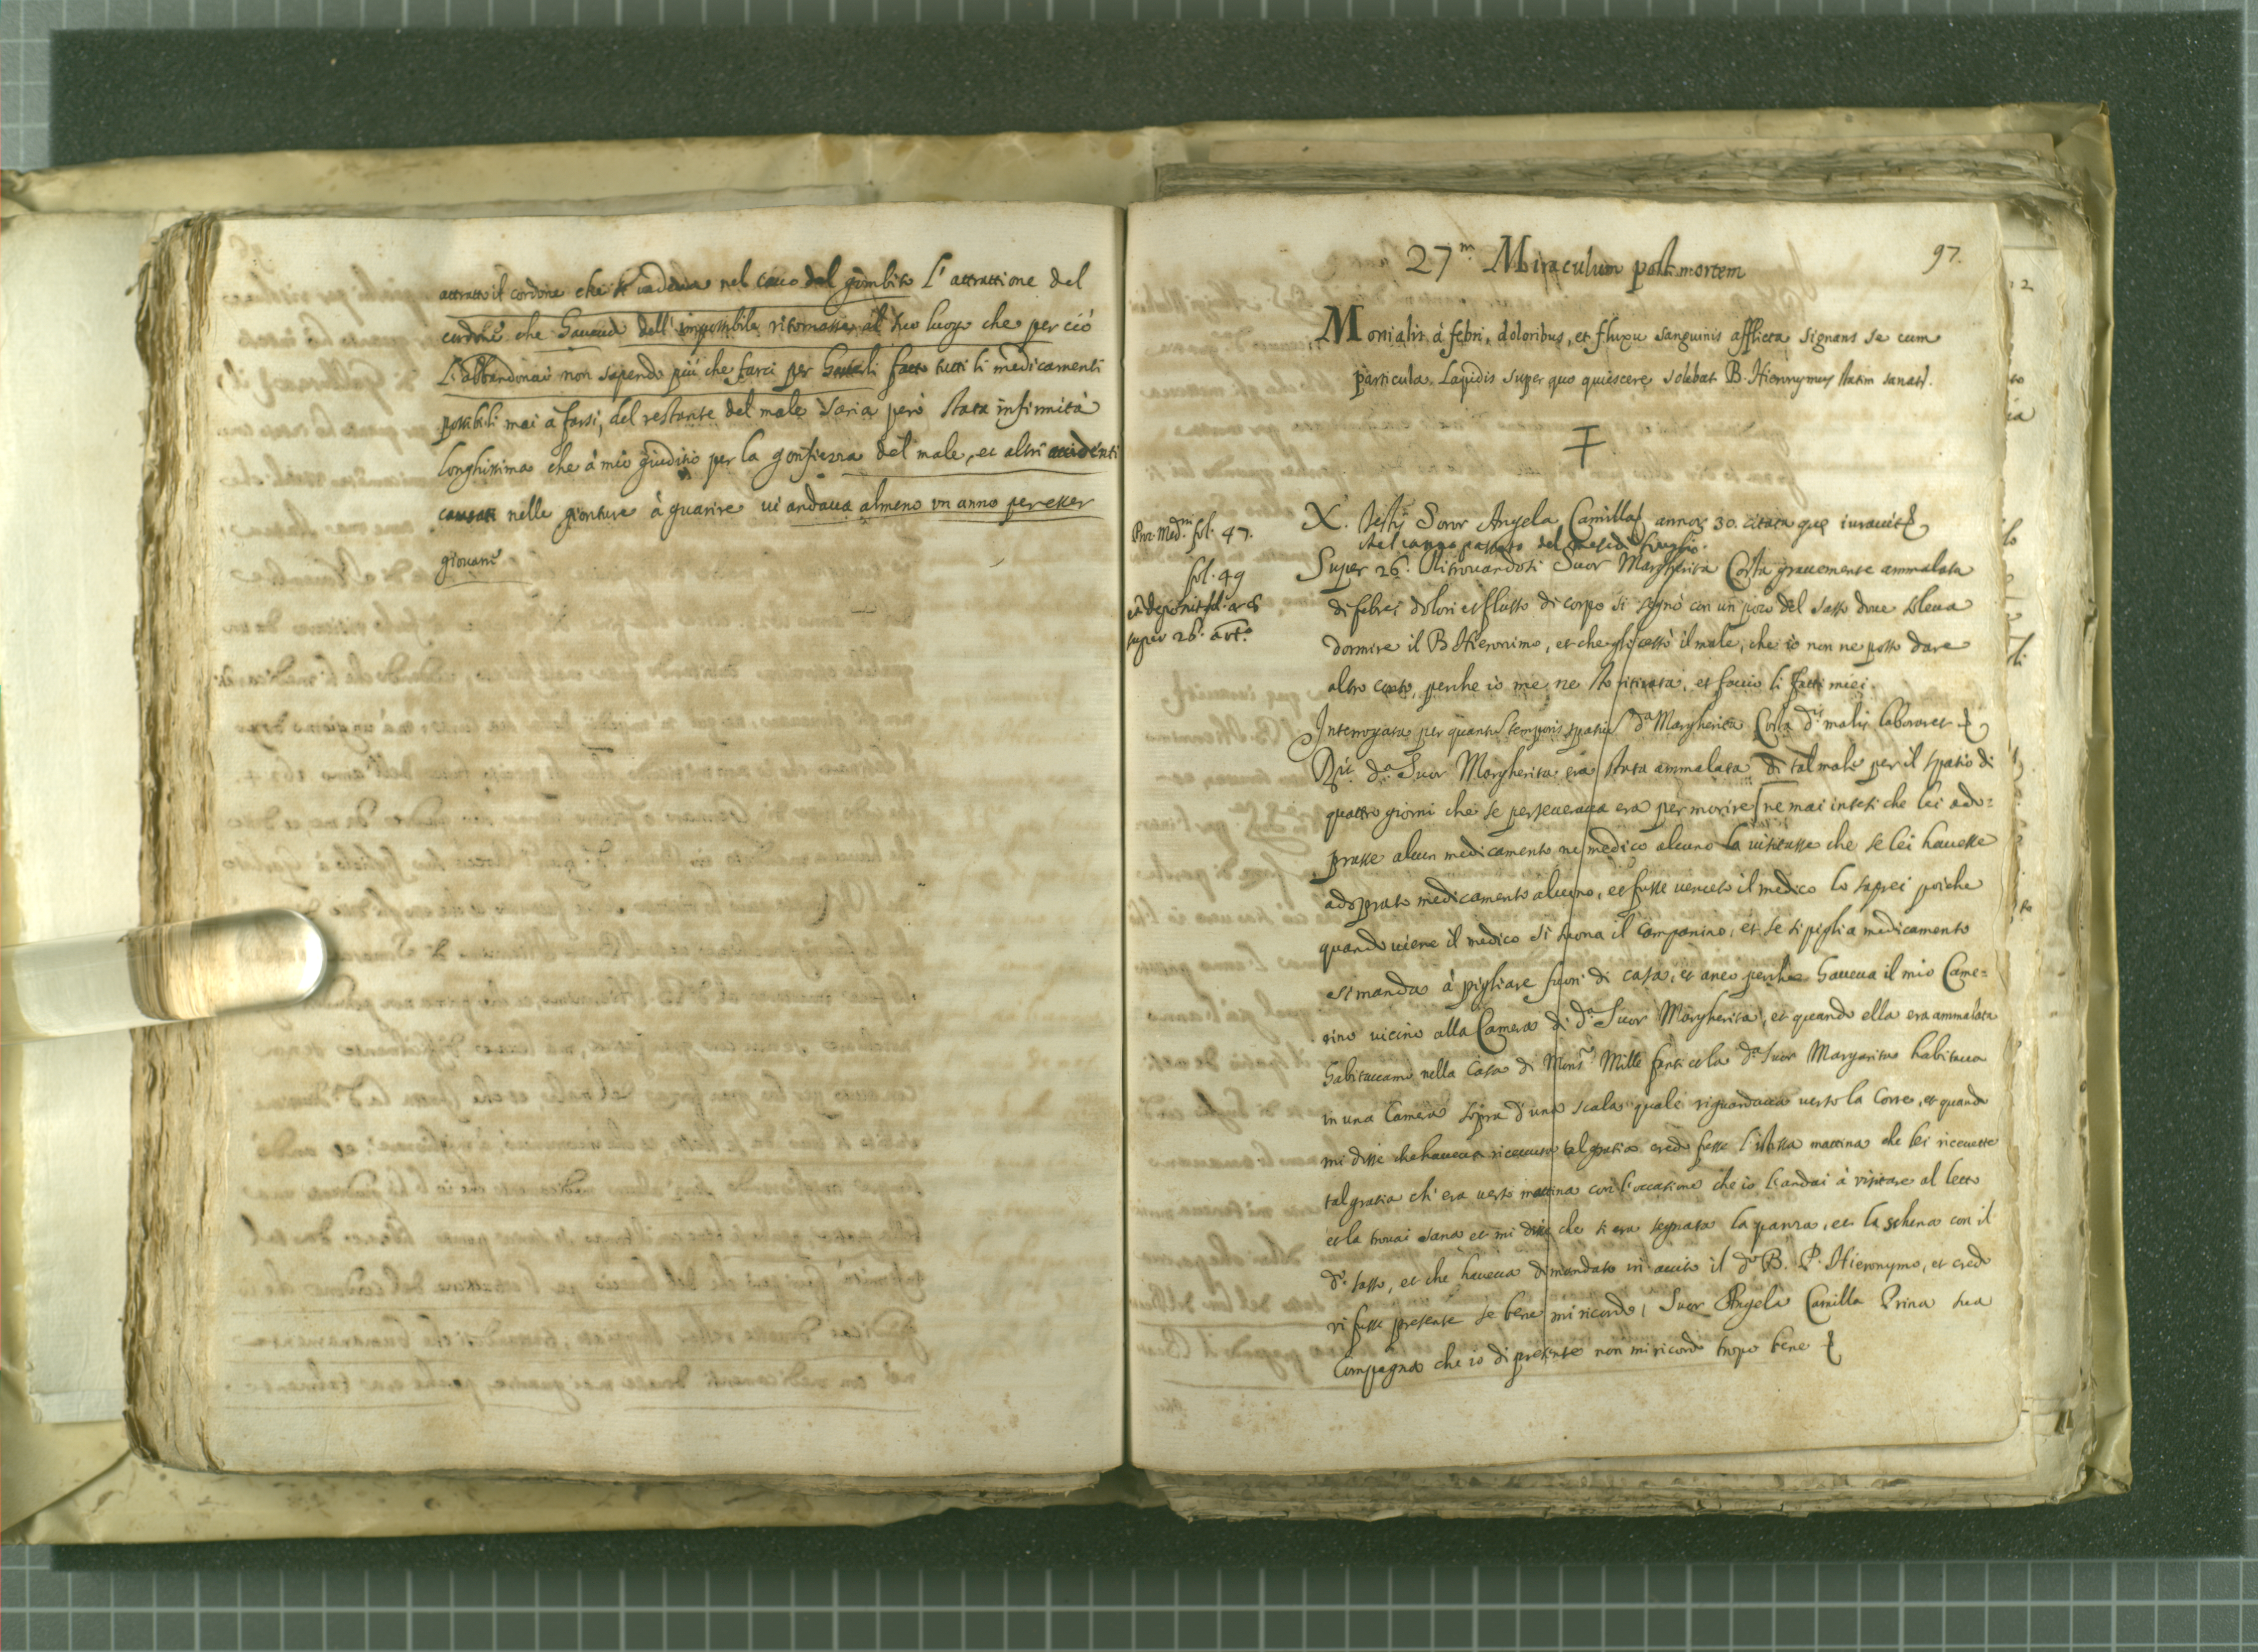 attratto il cordone che si vedeva nel cavo del gombito l'attrattione del
cordone che haveva dell'impossibile ritornasse al suo luogo che per ciò
l'abbandonai non sapendo più che farci per haverli fatto tutti li medicamenti
possibili mai a farsi, del restante del male saria però stata infirmità
longhissima che à mio giuditio per la gonfiezza del male, et altri accidenti
causati nelle gionture à guarire vi andava almeno un anno per esser
giovane
97.
27.m Miraculum post mortem
Monialis à febri, doloribus, et fluxu sanguinis afflicta signans se cum
particula Lapidis super quo quiescere solebat B. Hieronymus statim sanat.
X. testis Soror Angela Camilla annor. 30. citata que iuravit
nel anno passato del mese di luglio
Super 26. Ritrovandosi Suor Margherita Costa gravemente ammalata
di febre, dolori et flusso di corpo si segnò con un poco del sasso dove soleva
dormire il B. Hieronimo, et che gli cessò il male, che io non ne posso dare
altro conto, perche io me ne sto ritirata, et faccio li fatti miei.
Interrogata per quantu temporis spatiu d.a Margherita Costa d.is malis laboraret
d.a Suor Margherita era stata ammalata di tal male per il spatio di
quattro giorni che se perseverava era per morire ne mai intesi che lei ado=
prasse alcun medicamento ne medico alcuno la visitasse che se lei havesse
adoprato medicamento alcuno, et fusse venuto il medico lo saprei poiche
quando viene il medico si suona il campanino, et se si piglia medicamento
si manda à pigliare fuori di casa, et anco perche haveva il mio Came=
rino vicino alla Camera di d.a Suor Margherita, et quando ella era ammalata
habitavamo nella Casa di Mons.r Mille fanti et la d.a Suor Margarita habitava
in una Camera sopra d'una scala quale riguardava verso la Corte, et quando
mi disse che haveva ricevuto tal gratia credo fusse l'istessa mattina che lei ricevette
tal gratia ch'era verso mattina con l'occasione che io l'andai à visitare al letto
et la trovai sana et mi disse che si era segnata la panza, et la schena con il
d.o sasso, et che haveva dimandato in aiuto il d.o B. P. Hieronymo, et credo
vi fusse presente se bene mi ricordo, Suor Angela Camilla Prina sua
Compagna che io di presente non mi ricordo tropo bene
fol. 47.
fol. 49
super 26. art.o